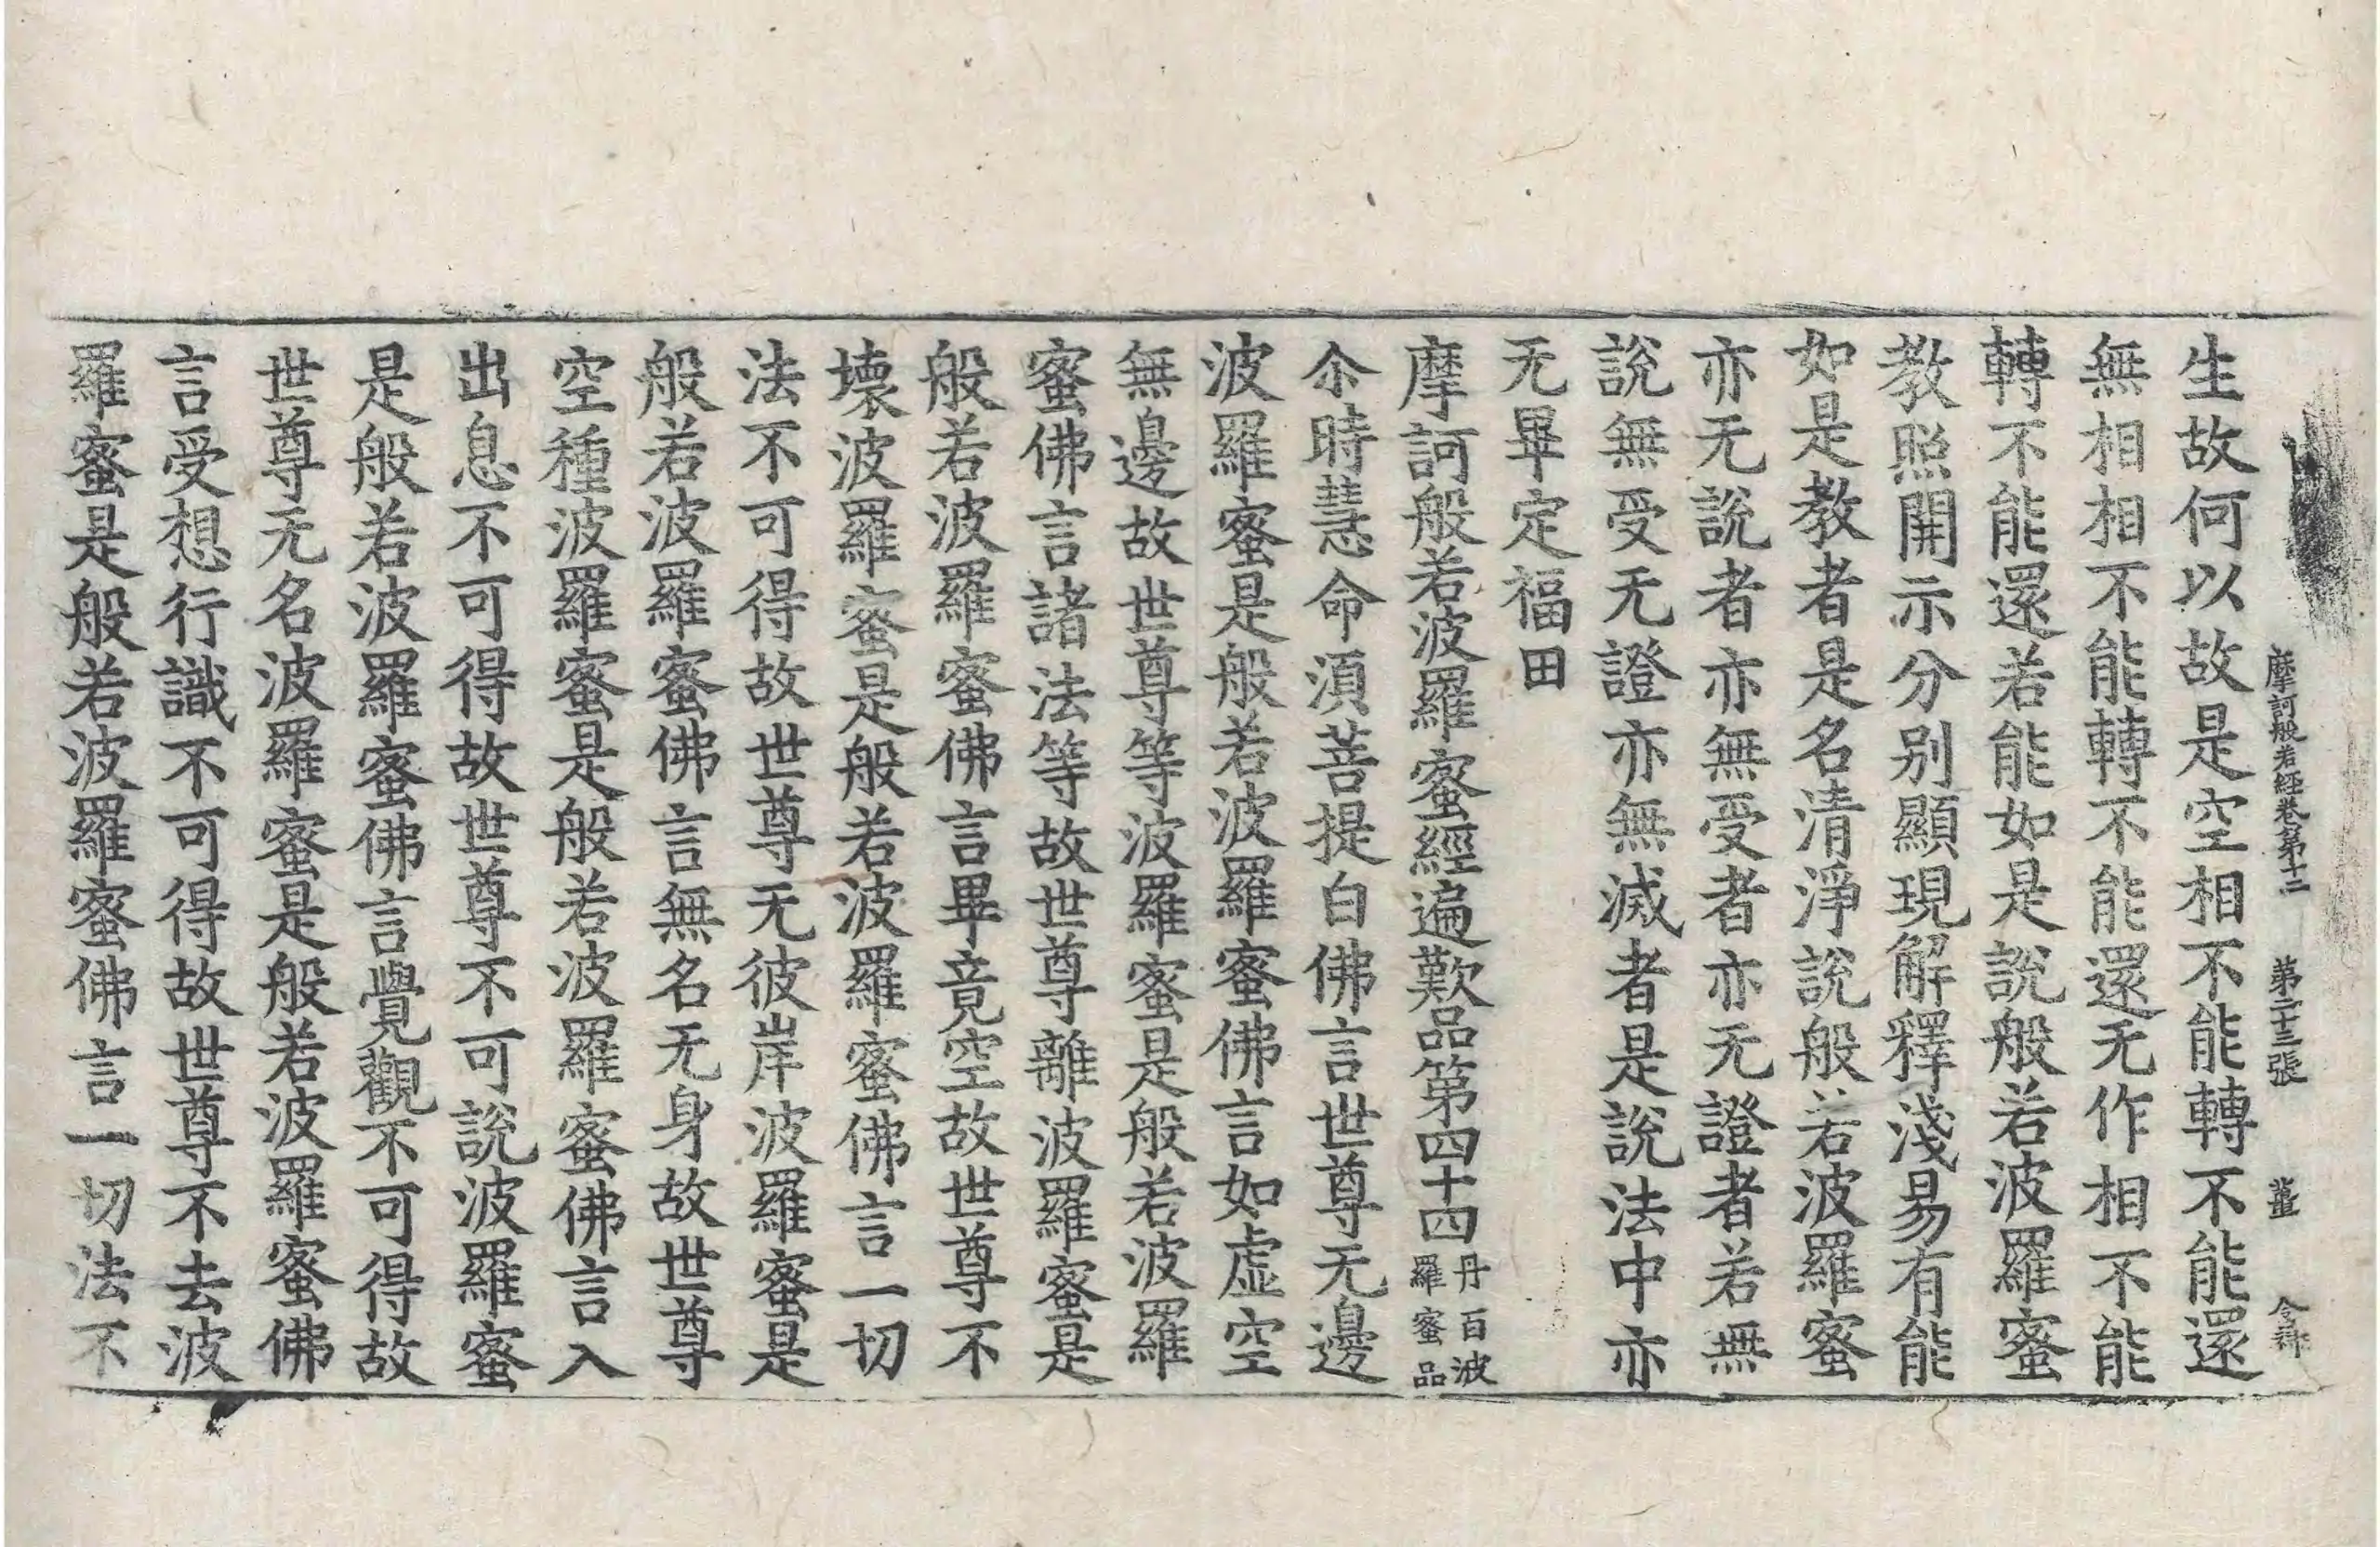 摩訶般若經卷第十二 第二十三張 薑
生故何以故是空相不能轉不能還
無相相不能轉不能還无作相不能
轉不能還若能如是說般若波羅蜜
教照開示分別顯現解釋淺易有能
如是教者是名清淨說般若波羅蜜
亦无說者亦無受者亦无證者若無
說無受无證亦無滅者是說法中亦
无畢定福田
摩訶般若波羅蜜經遍歎品第四十四 丹百波羅蜜品
尒時慧命湏菩提白佛言世尊无邊
波羅蜜是般若波羅蜜佛言如虛空
無邊故世尊等波羅蜜是般若波羅
蜜佛言諸法等故世尊離波羅蜜是
般若波羅蜜佛言畢竟空故世尊不
壞波羅蜜是般若波羅蜜佛言一切
法不可得故世尊无彼岸波羅蜜是
般若波羅蜜佛言無名无身故世尊
空種波羅蜜是般若波羅蜜佛言入
出息不可得故世尊不可說波羅蜜
是般若波羅蜜佛言覺觀不可得故
世尊无名波羅蜜是般若波羅蜜佛
言受想行識不可得故世尊不去波
羅蜜是般若波羅蜜佛言一切法不